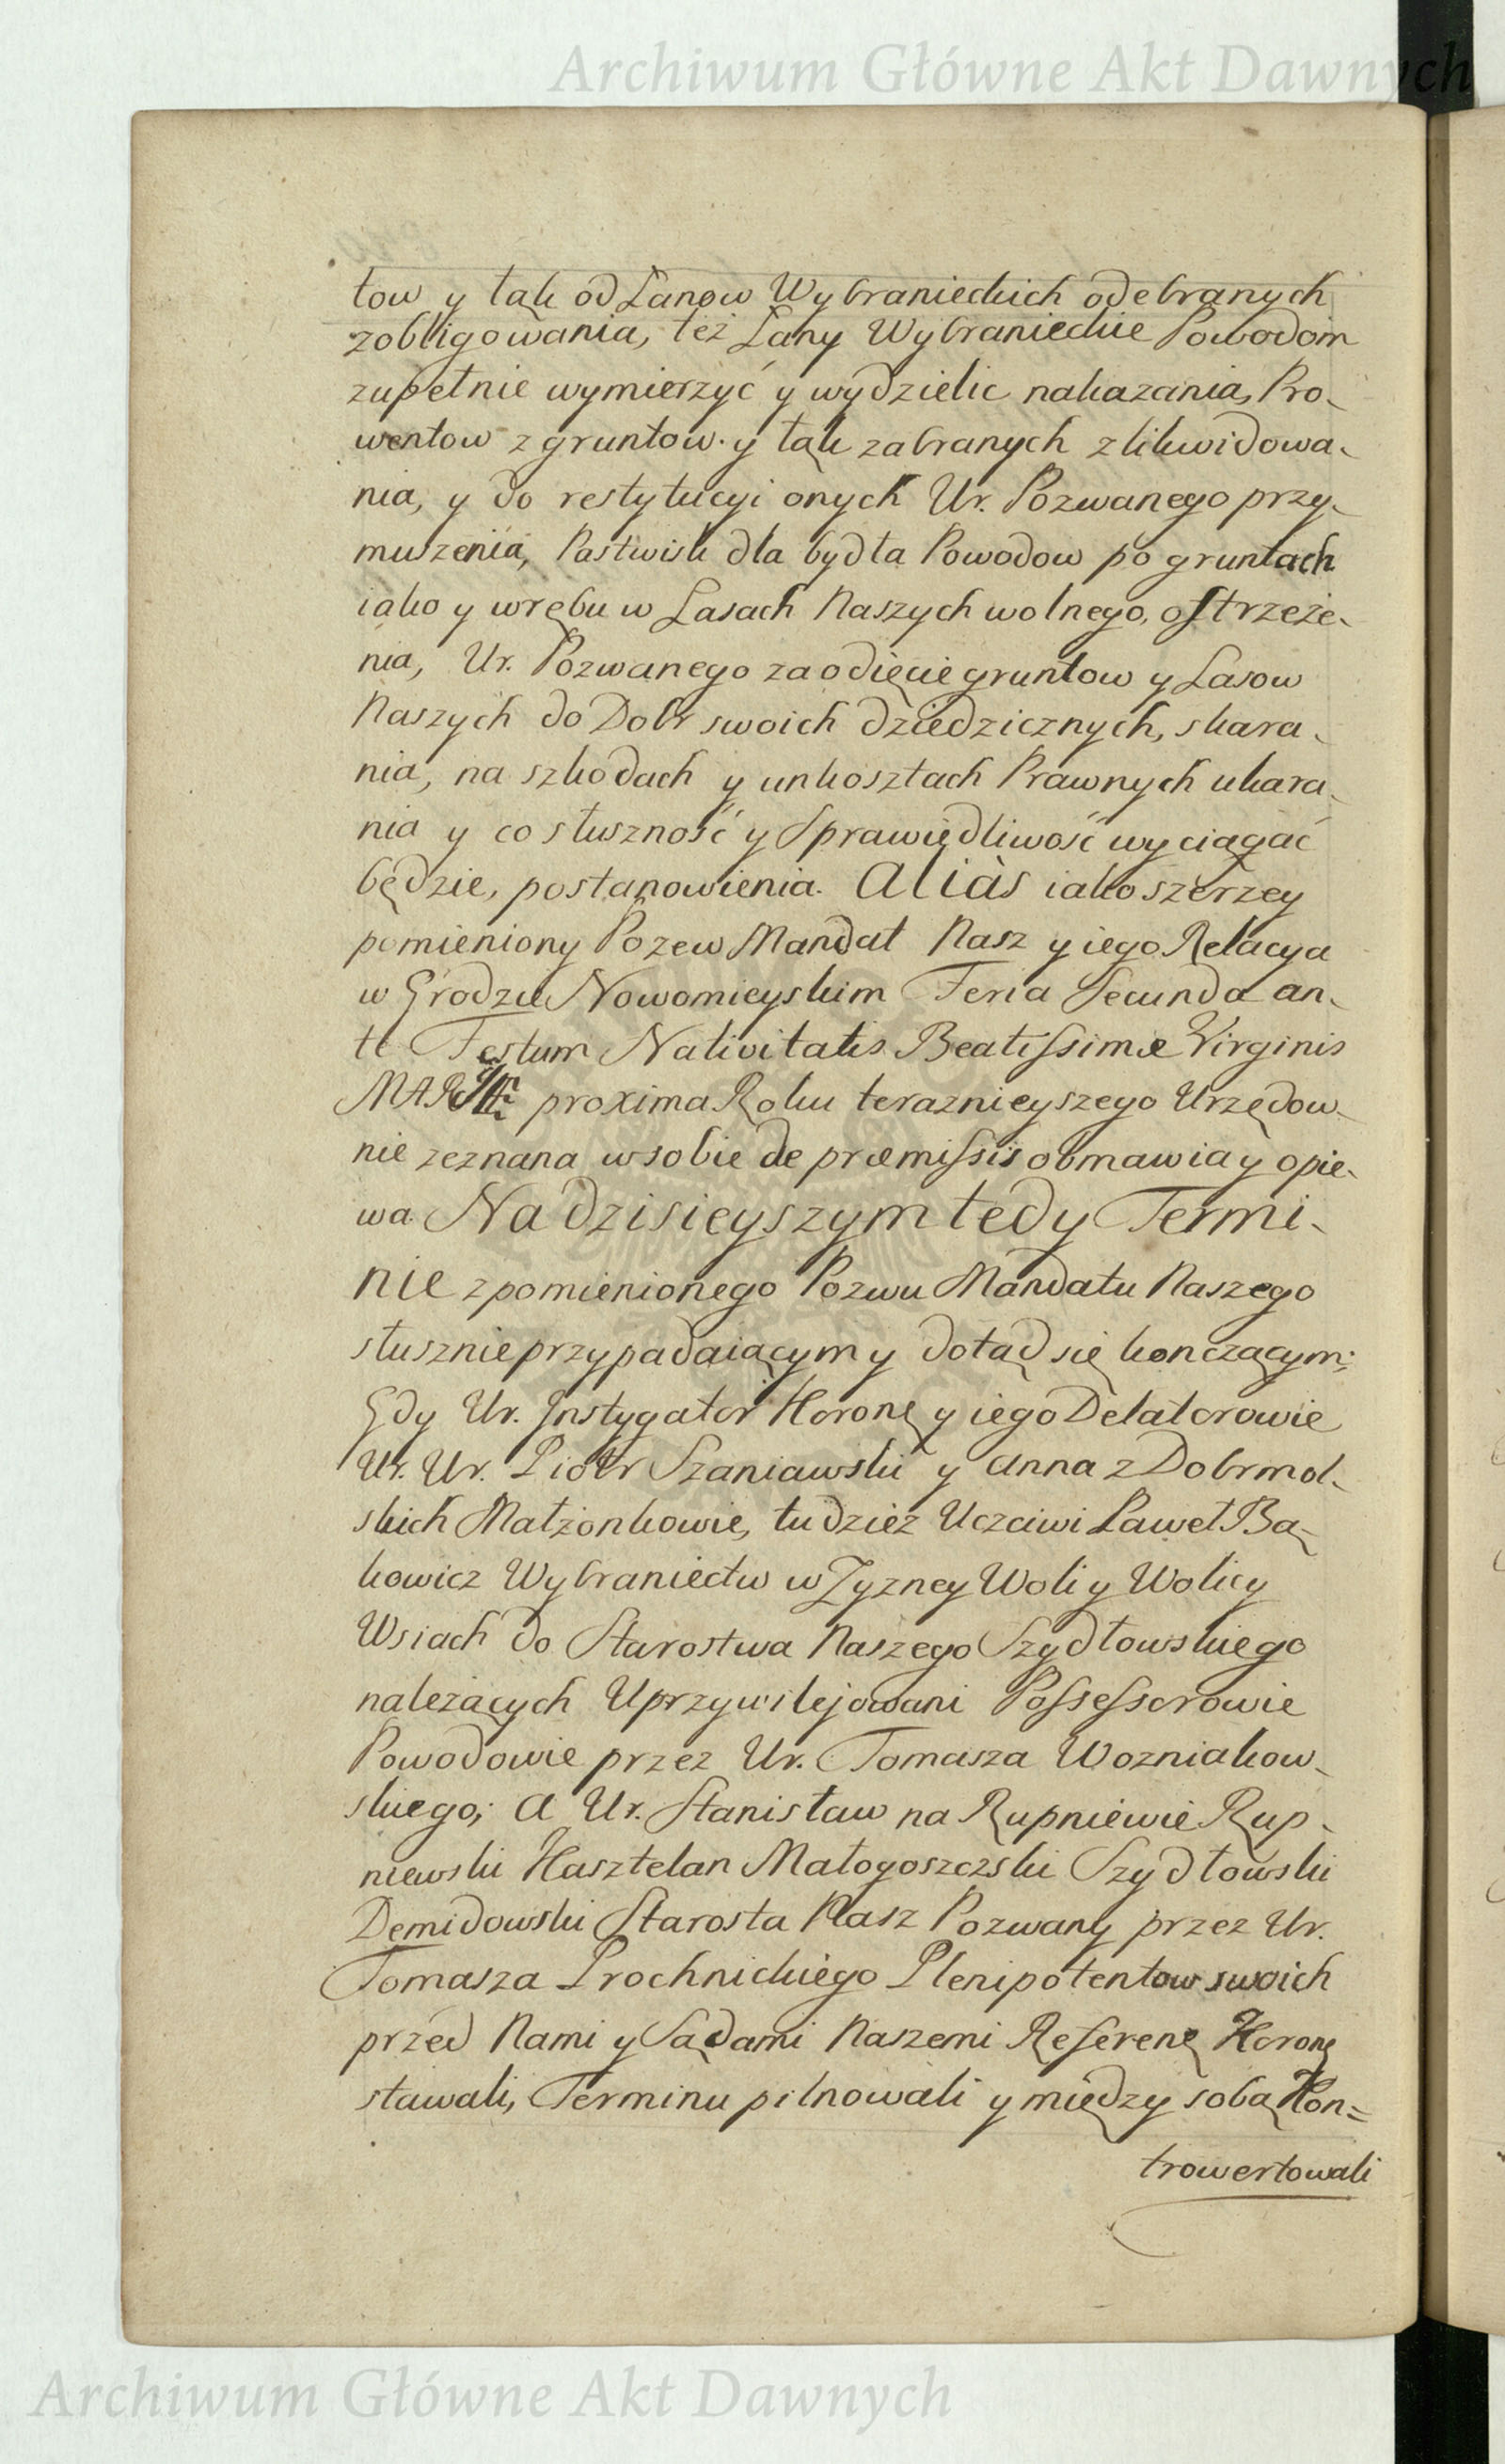 Archiwum Główne Akt Dawnych
tow y łąk od Łanow Wybranieckich odebranych
zobligowania, też Łany Wybranieckie Powodom
zupełnie wymierzyć y wydzielic nakazania, Pro-
wentow z gruntow y łąk zabranych zlikwidowa-
nia, y do restytucyi onych Ur. Pozwanego przy-
muszenia, Pastwisk dla bydła Powodow po gruntach
iako y wrębu w Lasach Naszych wolnego, ostrzeże-
nia, Ur. Pozwanego za odięcie gruntow y Lasow
Naszych do Dobr swoich dziedzicznych, skara-
nia, na szkodach y unkosztach Prawnych ukara-
nia y co słuszność y Sprawiedliwość wyciągać
będzie, postanowienia. Aliàs iako szerzey
pomieniony Pozew Mandat Nasz y iego Relacya
w Grodzie Nowomieyskim Feria Secunda an-
te Festum Nativitatis Beatissimæ Virginis
MARIÆ proxima Roku teraznieyszego Urzędow-
nie zeznana w sobie de præmissis obmawia y opie-
wa. Na dzisieyszym tedy Termi-
nie z pomienionego Pozwu Mandatu Naszego
słusznie przypadaiącym y dotąd się kończącym;
Gdy Ur. Instygator Koronę y iego Delatorowie
Ur. Ur. Piotr Szaniawski y Anna z Dobrmol-
skich Małżonkowie, tudzież Uczciwi Paweł Bą-
kowicz Wybraniectw w Zyzney Woli y Wolicy
Wsiach do Starostwa Naszego Szydłowskiego
należących Uprzywilejowani Possessorowie
Powodowie przez Ur. Tomasza Wozniakow-
skiego; A Ur. Stanisław na Rupniewie Rup-
niewski Kasztelan Małogoszczski Szydłowski
Demidowski Starosta Nasz Pozwany przez Ur.
Tomasza Prochnickiego Plenipotentow swoich
przed Nami y Sądami Naszemi Referenę Koronę
stawali, Terminu pilnowali y między sobą Kon=
trowertowali
Archiwum Główne Akt Dawnych